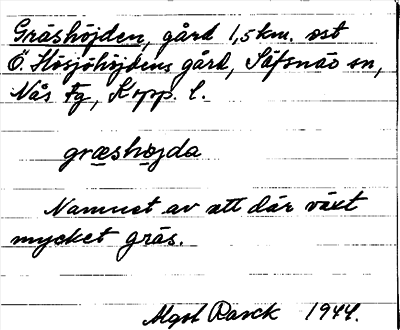 Gräshöjden, gård 1,5 km. ost
Ö. Hösjöhöjdens gård, Säfsnäs sn,
Nås Fg, Kopp. l.
græshøjda
Namnet av att där växt
mycket gräs.
Algot Rasck 1944.